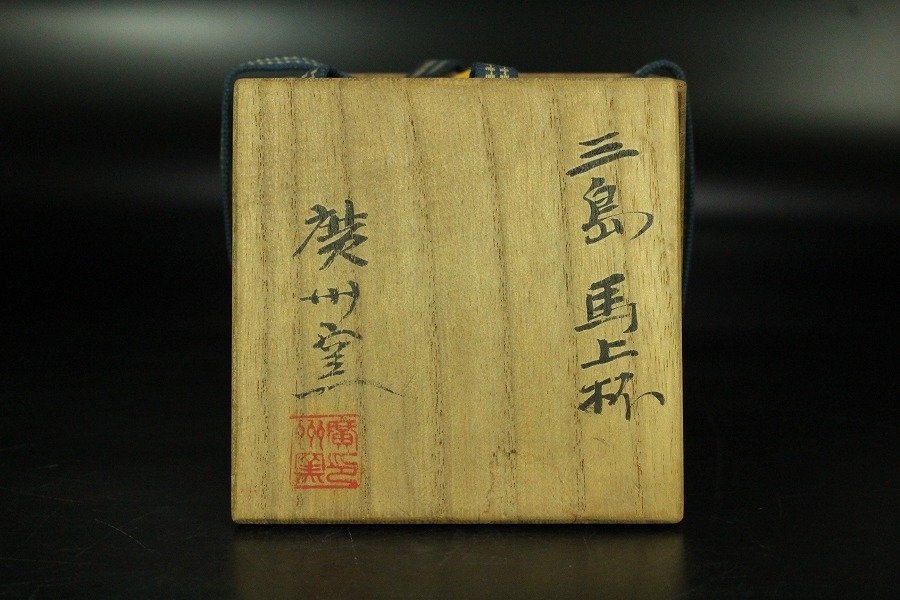 三島 馬上杯
廣州窯
廣州窯印